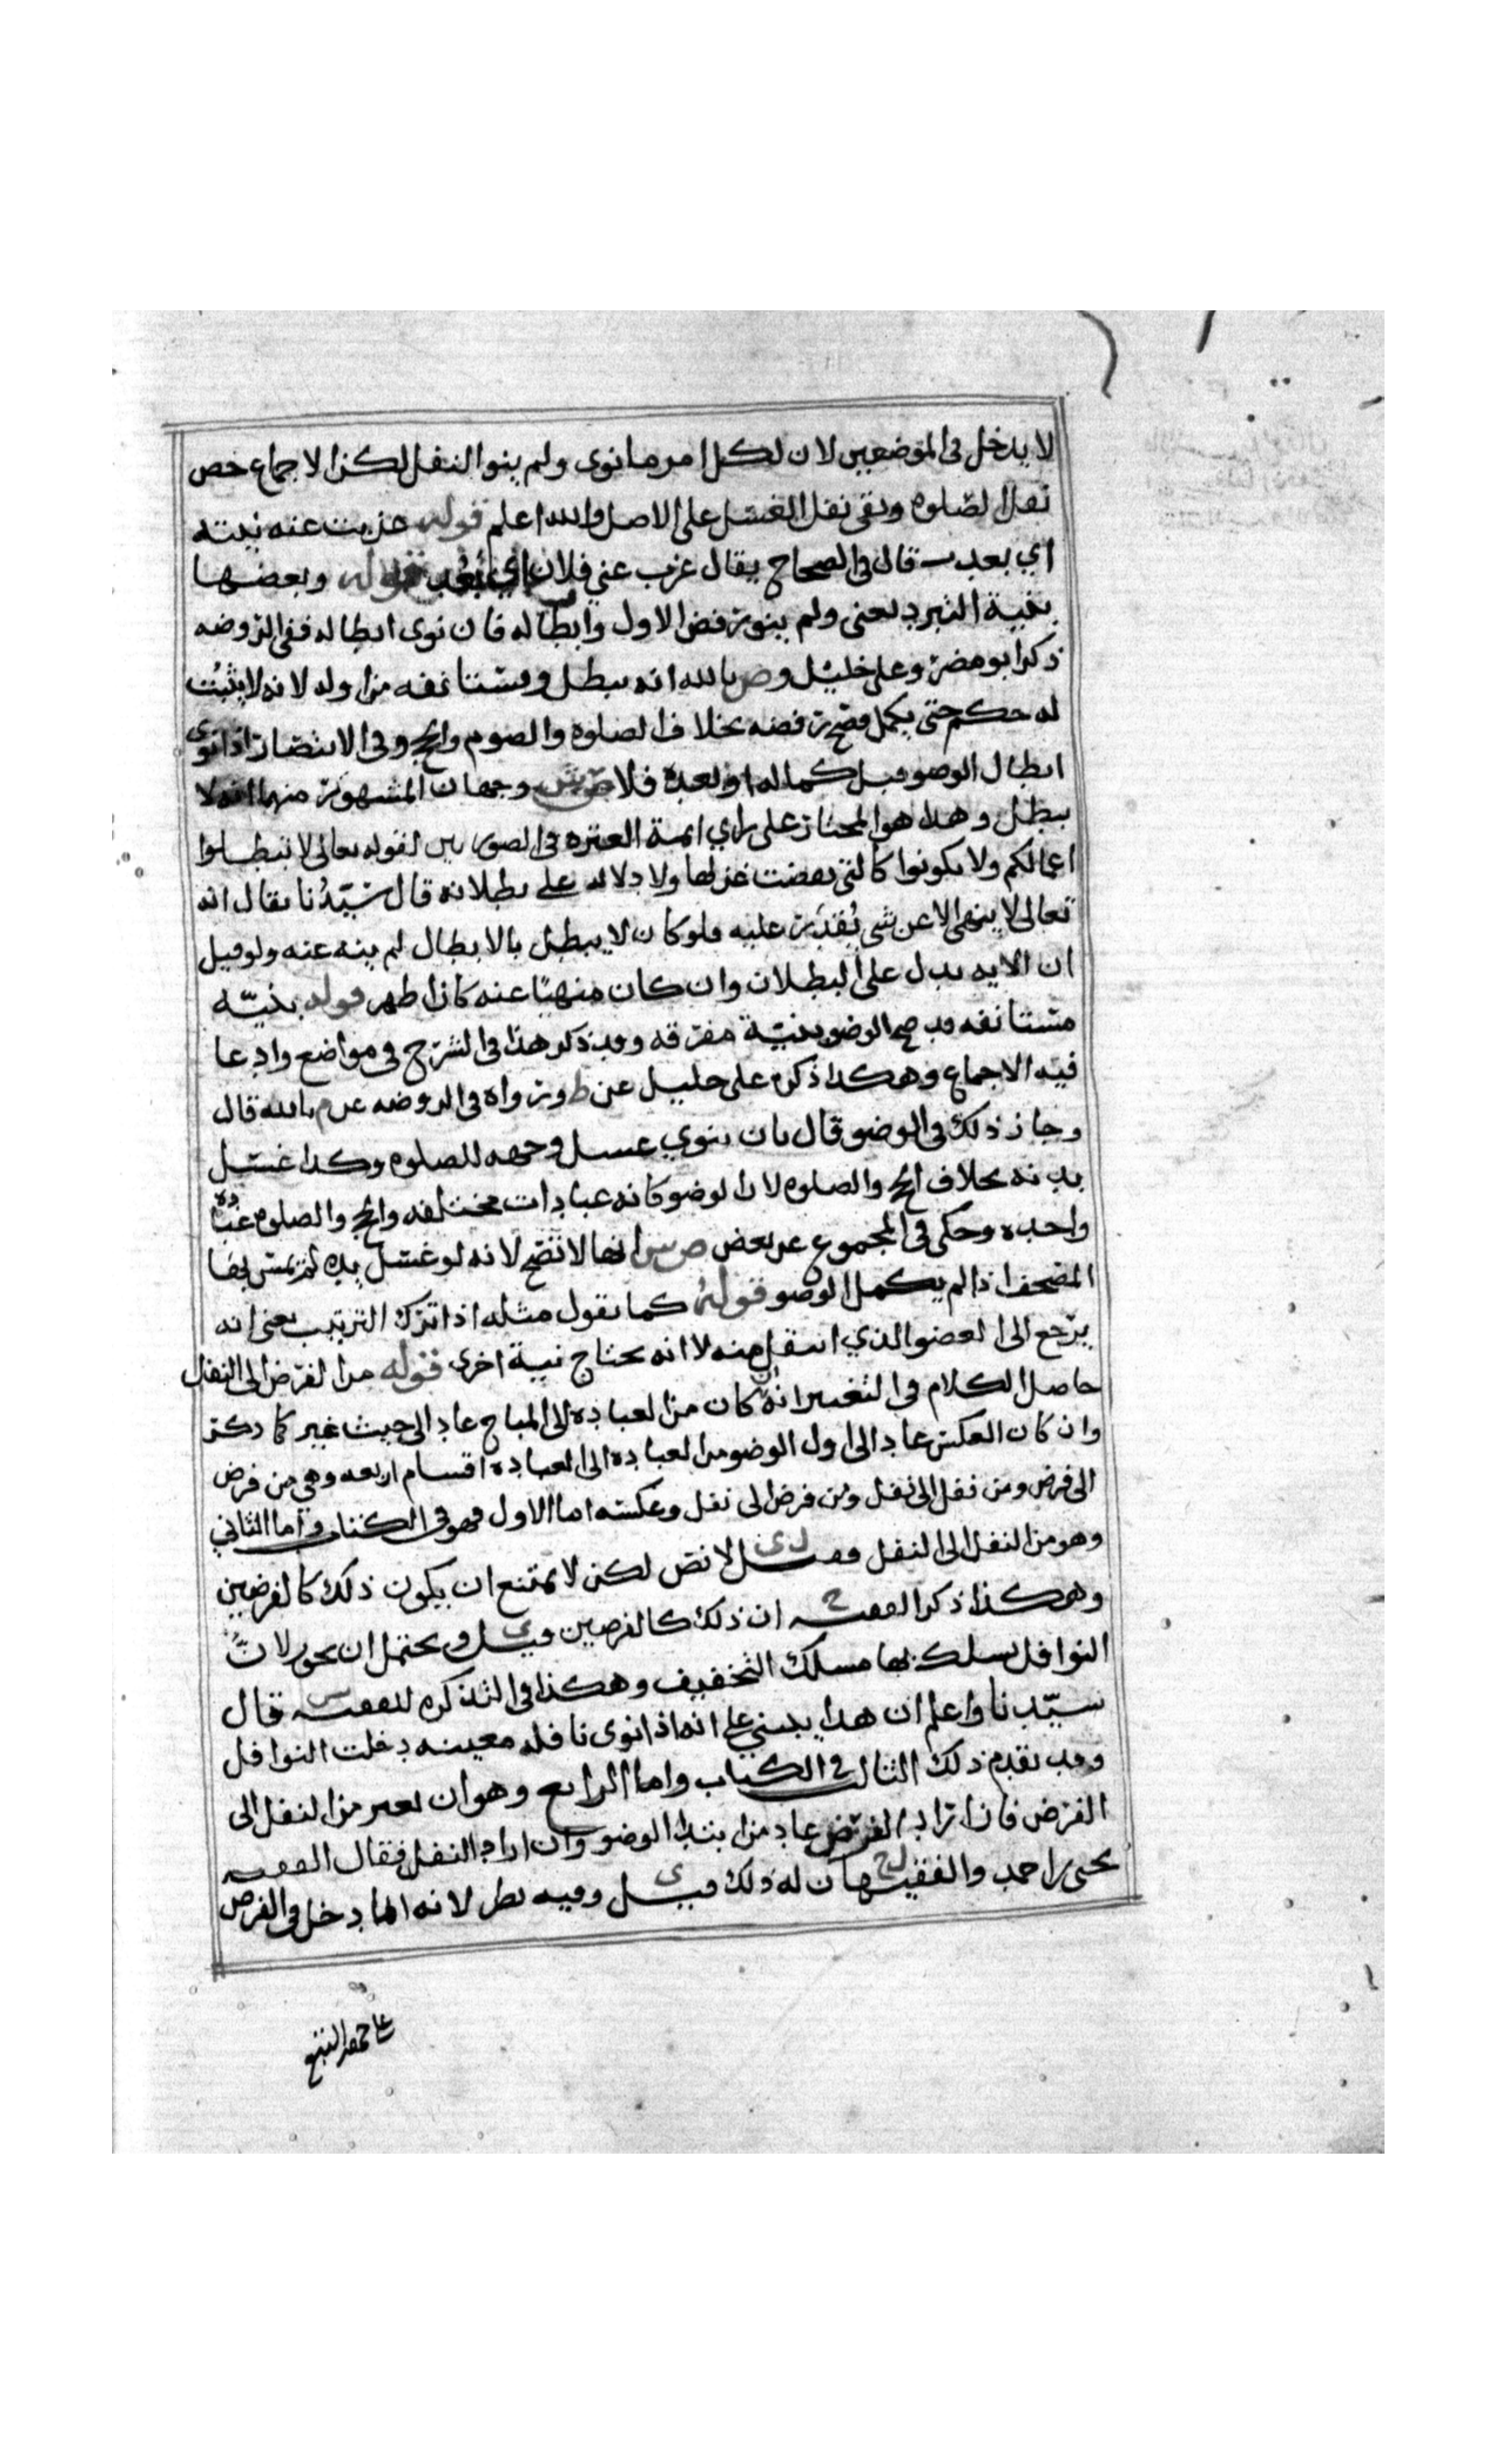 لا يدخل في الموضعين لان لكل امر ما نوى ولم ينوا النفل لكن الاجماع خص
نفل الصلوه وبقي نفل الغسل على الاصل والله اعلم قوله عزبت عنه نيته
اي بعدت قال في الصحاح يقال عزب عني فلان اي بعد قوله وبعضها
بنية التبرد يعني ولم ينو رفض الاول وابطاله فان نوى ابطاله ففي الروضه
ذكر ابو مضر وعلي خليل وص بالله انه يبطل ويستانفه من اوله لانه لا يثبت
له حكم حتى يكمل فصح رفضه بخلاف الصلوه والصوم والحج وفي الانتصار اذا نوى
ابطال الوضو قبل كماله او بعده فلاصش وجهان المشهور منهما انه لا
يبطل وهذا هو المختار على راي ايمة العتره في الصورتين لقوله تعالى لا تبطلوا
اعمالكم ولا تكونوا كالتي نقضت غزلها ولا دلاله على بطلانه قال سيدنا يقال انه
تعالى لا ينهى الا عن شي يقدر عليه فلو كان لا يبطل بالابطال لم ينه عنه ولو قيل
ان الايه تدل على البطلان وان كان منهيا عنه كان اظهر قوله بنيه
مستانفه قد صح الوضو بنية مفرقه وقد ذكر هذا في الشرح في مواضع وادعا
فيه الاجماع وهكذا ذكره علي خليل عن ط ورواه في الروضه عن م بالله قال
وجاز ذلك في الوضو قال بان ينوي غسل وجهه للصلوه وكذا غسل
بدنه بخلاف الحج والصلوه لان الوضو كانه عبادات مختلفه والحج والصلوه عباده
واحده وحكى في المجموع عن بعض ص ش انها لا تصح لانه لو غسل يده لم يمس بها
المصحف اذا لم يكمل الوضو قوله كما نقول مثله اذا ترك الترتيب يعني انه
يرجع الى العضو الذي انتقل منه لا انه يحتاج نية اخرى قوله من الفرض الى النفل
حاصل الكلام في التغيير انه ان كان من العباده الى المباح عاد الى حيث غير كما ذكر
وان كان العكس عاد الى اول الوضو من العباده الى العباده اقسام اربعه وهي من فرض
الى فرض ومن نفل الى نفل ومن فرض الى نفل وعكسه اما الاول فهو في الكتاب واما الثاني
وهو من النفل الى النفل فقيل ي لا نص لكن لا يمتنع ان يكون ذلك كالفرضين
وهكذا ذكر الفقيه ح ان ذلك كالفرضين قيل ي ويحتمل ان يجوز لان
النوافل يسلك بها مسلك التخفيف وهكذا في التذكره للفقيه س قال
سيدنا واعلم ان هذا ينبني على انه اذا نوى نافله معينه دخلت النوافل
وقد تقدم ذلك الثالث في الكتاب واما الرابع وهو ان يغير من النفل الى
الفرض فان اراد الفرض عاد من ابتدا الوضو وان اراد النفل فقال الفقيه
يحيى بن احمد والفقيه ح ان له ذلك قيل ي وفيه نظر لانه انما دخل في الفرض